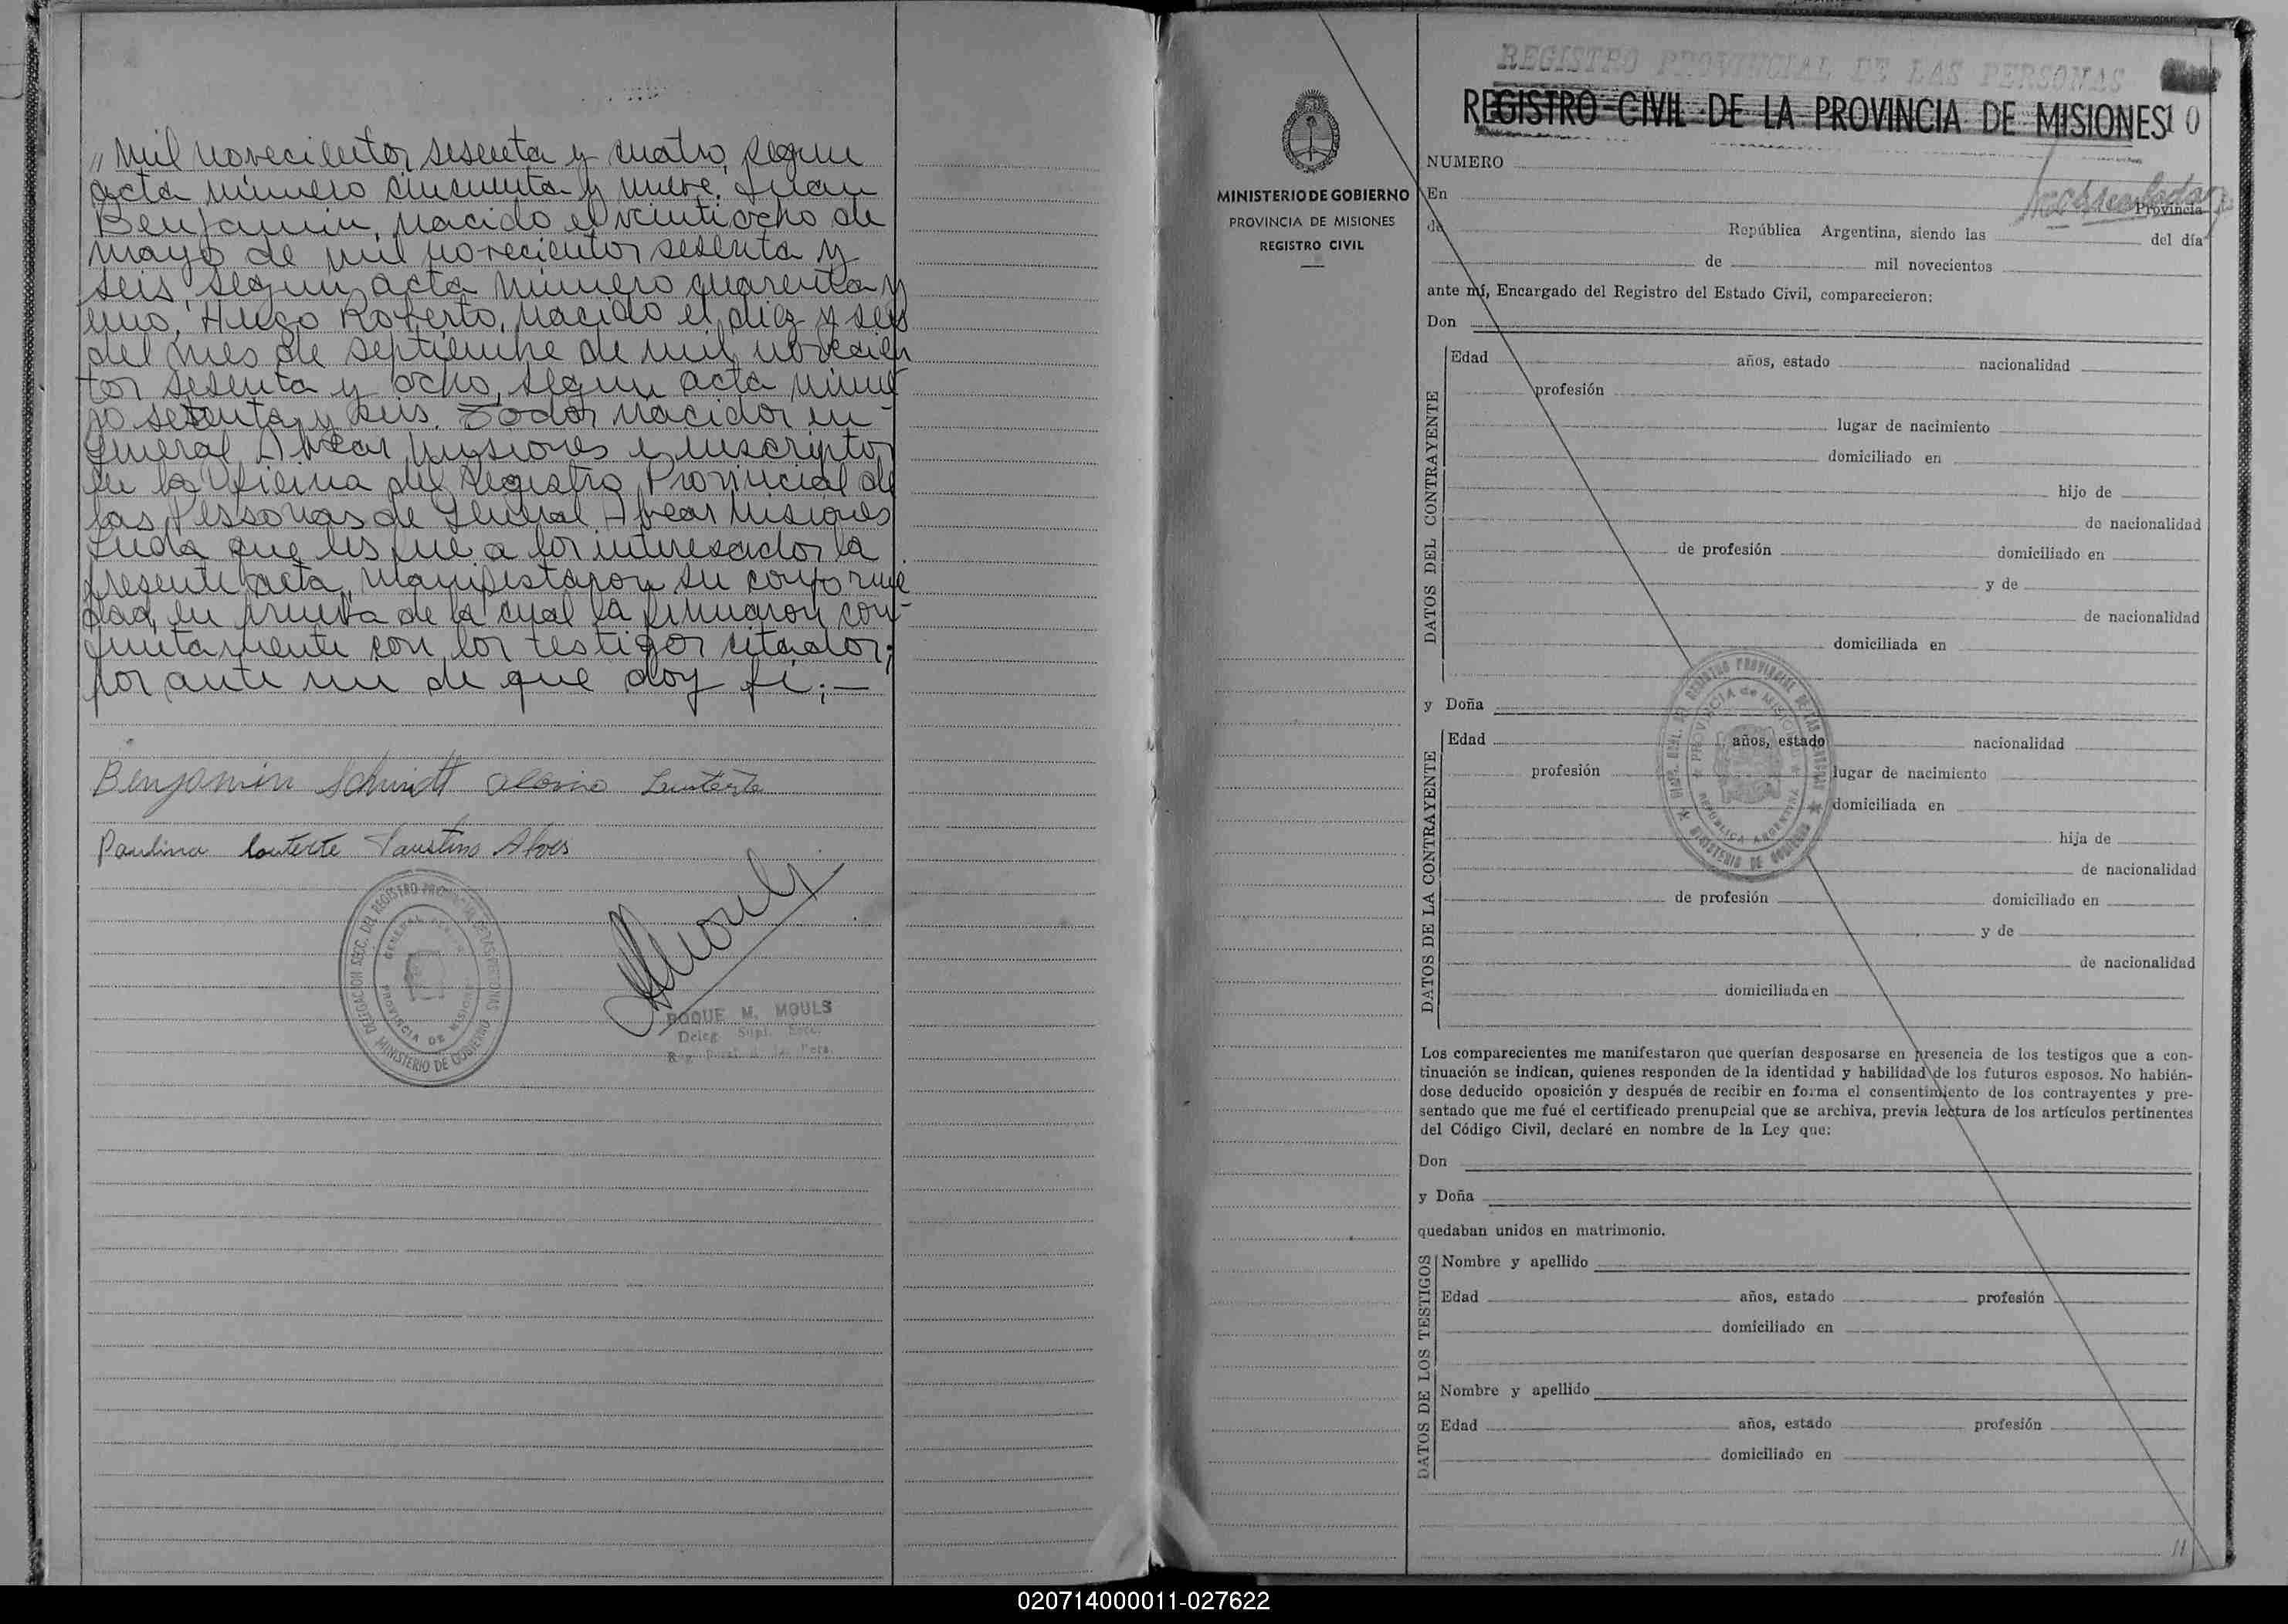 „ mil novecientos sesenta y cuatro, segun
acta número cincuenta y nueve. Juan
Benjamin, nacido el veintiocho de
mayo de mil novecientos sesenta y
seis, segun acta número quarenta y
uno, Hugo Roberto, nacido el diez y seis
del mes de septiembre de mil novecien
tos sesenta y ocho, segun acta núme
ro setenta y seis. Todos nacidos en
General Alvear Misiones e inscriptos
en la Oficina del Registro Provincial de
las Personas de General Alvear Misiones
Leida que les fue a los interesados la
presente acta, manifestaron su conformi
dad, en prueba de la cual la firmaron con-
juntamente con los testigos citados;
por ante mi de que doy fé;—
Benjamin Schmidt
Paulina Faustino Alves
DELEGACION SECC. DEL REGISTRO PROVINCIAL DE LAS PERSONAS
GENERAL ALVEAR
PROVINCIA DE MISIONES
MINISTERIO DE GOBIERNO
ROQUE M. MOULS
Deleg. Supl. Secc.
Reg. Pcial. de las Pers.
MINISTERIO DE GOBIERNO
PROVINCIA DE MISIONES
REGISTRO CIVIL
REGISTRO PROVINCIAL DE LAS PERSONAS
REGISTRO CIVIL DE LA PROVINCIA DE MISIONES 10
NUMERO
En Provincia
de República Argentina, siendo las del día
de mil novecientos
ante mí, Encargado del Registro del Estado Civil, comparecieron:
Don
DATOS DEL CONTRAYENTE
Edad años, estado nacionalidad
profesión
lugar de nacimiento
domiciliado en
hijo de
de nacionalidad
de profesión domiciliado en
y de
de nacionalidad
domiciliada en
y Doña
DATOS DE LA CONTRAYENTE
Edad años, estado nacionalidad
profesión lugar de nacimiento
domiciliada en
hija de
de nacionalidad
de profesión domiciliado en
y de
de nacionalidad
domiciliada en
REGISTRO PROVINCIAL DE LAS PERSONAS
PROVINCIA de MISIONES
REPUBLICA ARGENTINA
MINISTERIO DE GOBIERNO
Los comparecientes me manifestaron que querían desposarse en presencia de los testigos que a con-
tinuación se indican, quienes responden de la identidad y habilidad de los futuros esposos. No habién-
dose deducido oposición y después de recibir en forma el consentimiento de los contrayentes y pre-
sentado que me fué el certificado prenupcial que se archiva, previa lectura de los artículos pertinentes
del Código Civil, declaré en nombre de la Ley que:
Don
y Doña
quedaban unidos en matrimonio.
DATOS DE LOS TESTIGOS
Nombre y apellido
Edad años, estado profesión
domiciliado en
Nombre y apellido
Edad años, estado profesión
domiciliado en
11
020714000011-027622